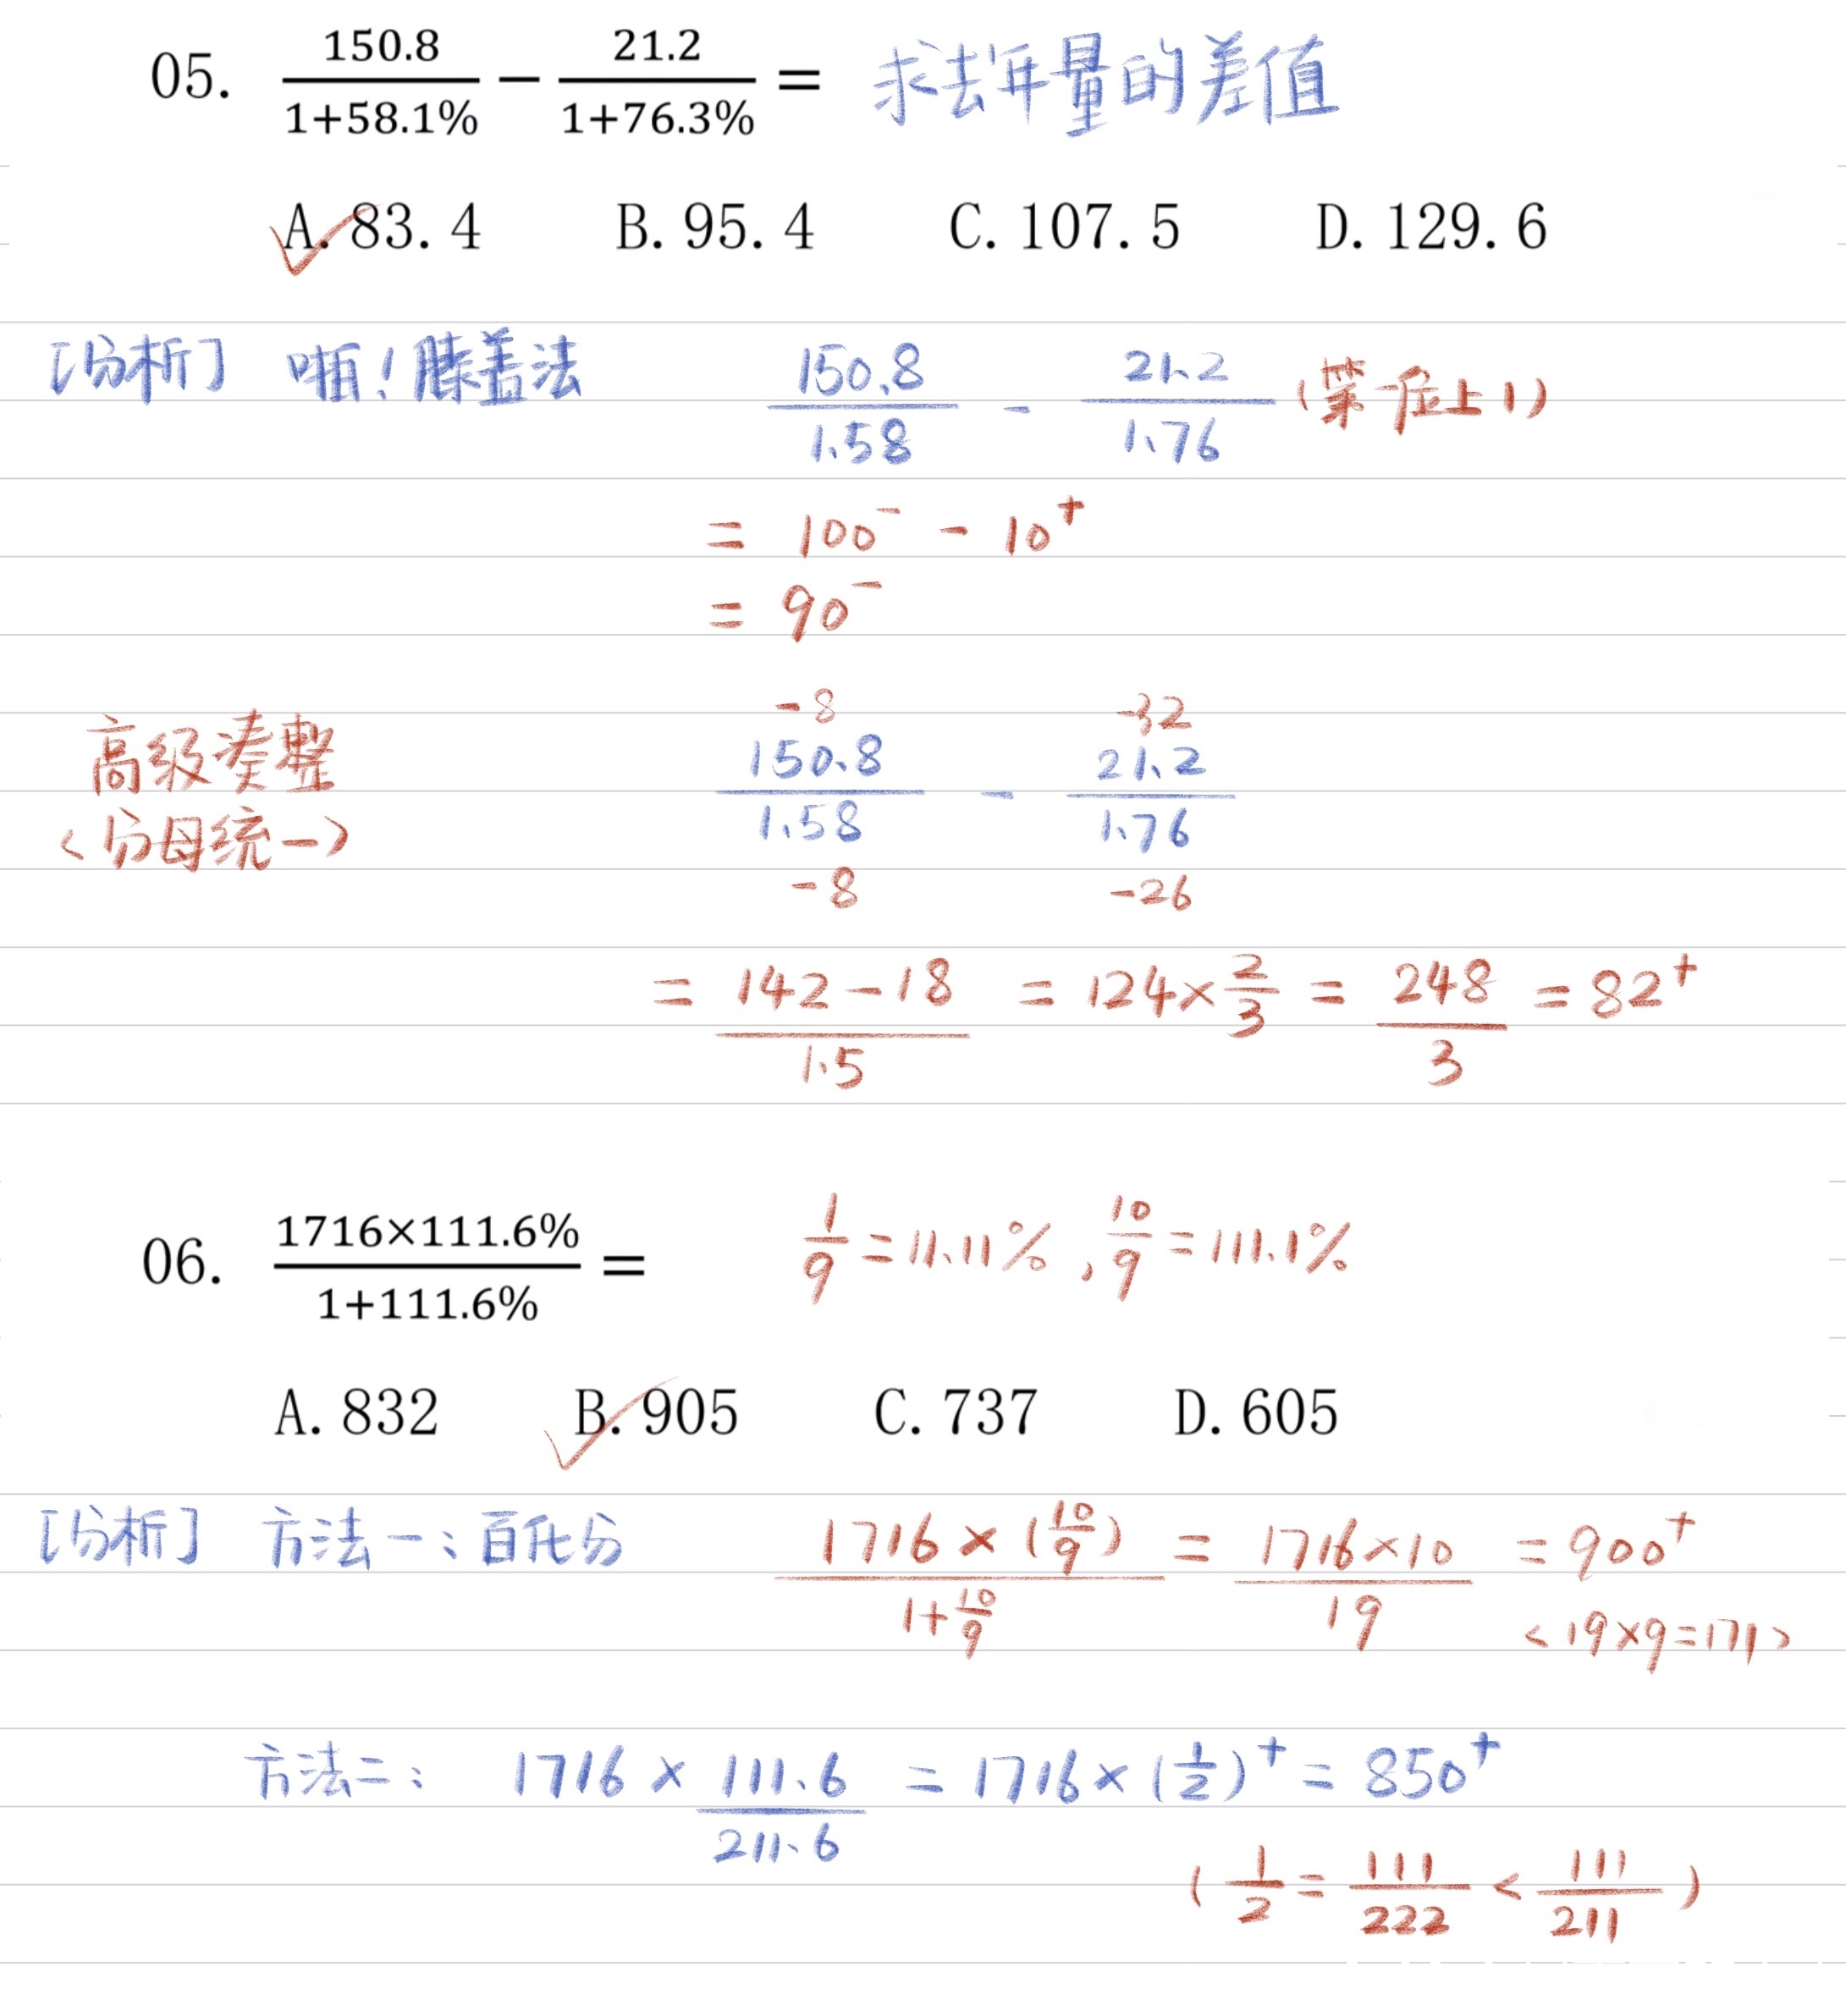 05. \frac{150.8}{1+58.1%} − \frac{21.2}{1+76.3%} = 求去年量的差值
A. 83.4 B. 95.4 C. 107.5 D. 129.6
[分析] 啪!膝盖法 \frac{150.8}{1.58} - \frac{21.2}{1.76} (第一位上1)
= 100⁻ - 10⁺
= 90⁻
-8 -32
高级凑整 \frac{150.8}{1.58} - \frac{21.2}{1.76}
<分母统一>
-8 -26
= \frac{142-18}{1.5} = 124×\frac{2}{3} = \frac{248}{3} = 82⁺
06. \frac{1716×111.6%}{1+111.6%} = \frac{1}{9}=11.11%, \frac{10}{9}=111.1%
A. 832 B. 905 C. 737 D. 605
[分析] 方法一:百化分 \frac{1716×(\frac{10}{9})}{1+\frac{10}{9}} = \frac{1716×10}{19} = 900⁺
<19×9=171>
方法二: 1716×\frac{111.6}{211.6} = 1716×(\frac{1}{2})⁺ = 850⁺
(\frac{1}{2}=\frac{111}{222}<\frac{111}{211})